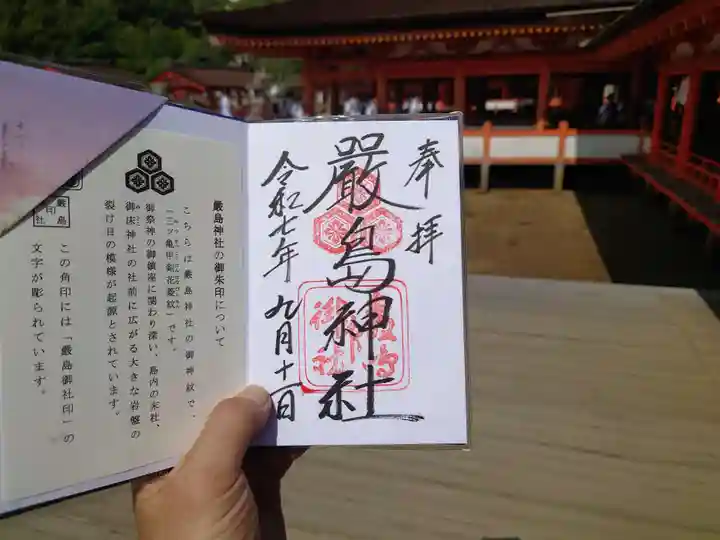 奉拝
嚴島神社
令和七年九月十一日
嚴島神社の御朱印について
こちらは嚴島神社の御神紋で、
「三ツ亀甲剣花菱紋」です。
御祭神の御鎮座に関わり深い、島内の末社、
御床神社の社前に広がる大きな岩盤の
裂け目の模様が起源とされています。
この角印には「嚴島御社印」の
文字が彫られています。